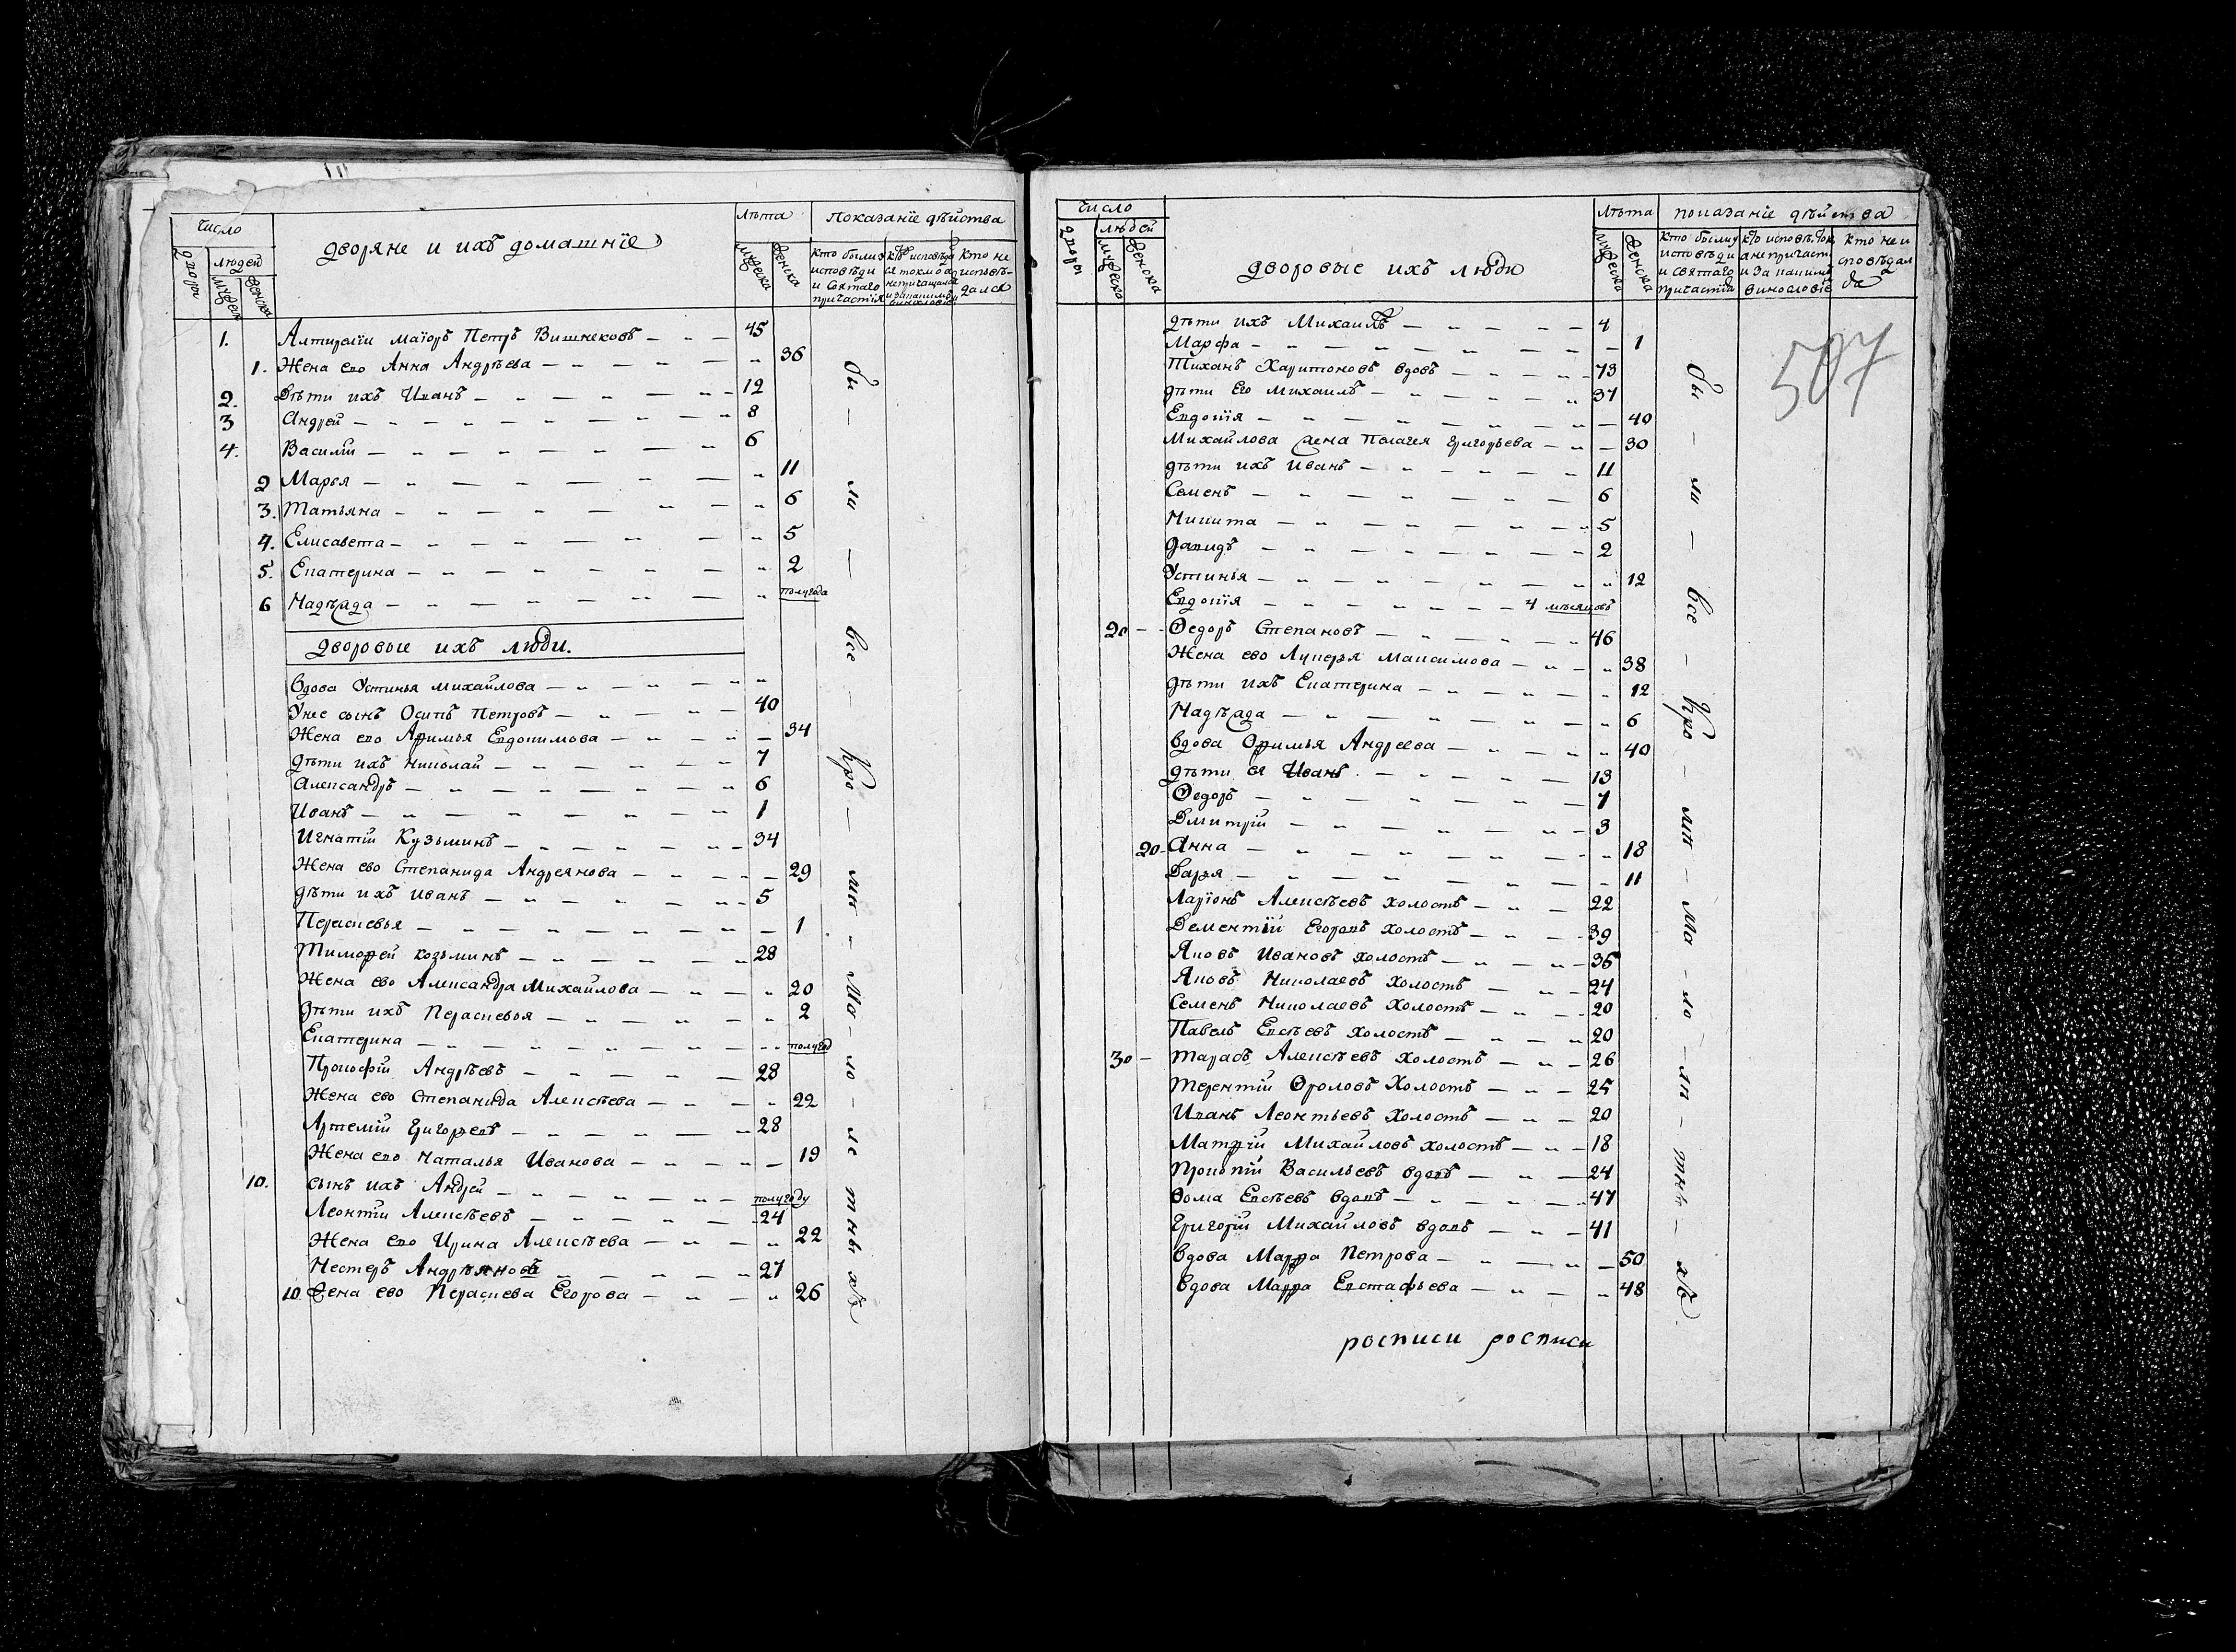 число
дворяне и ихъ домашніе
лѣта
показаніе дѣйства
дворы
людей
мужеска
женска
мужеска
женска
кто были у исповѣди и святаго причастія
кто не исповѣдался
1. Алтирелїи маіоръ Петръ Вишнековъ — 45
1. Жена ево Анна Андрѣева — 36
2. Дѣти ихъ Иванъ — 12
3 Андрей — 8
4. Василій — 6
2 Марья — 11
3. Татьяна — 6
4. Елисавета — 5
5. Екатерина — 2
6 Надѣжда — полугода
дворовые ихъ люди.
вдова Устинья михайлова
У нее сынъ Осипъ Петровъ — 40
Жена ево Афимья Евдокимова — 34
дѣти ихъ николай — 7
Александръ — 6
Иванъ — 1
Игнатій Кузьминъ — 34
Жена ево Степанида Андреянова — 29
дѣти ихъ иванъ — 5
Перасневья — 1
Тимофей козьминъ — 28
Жена ево Александра Михайлова — 20
дѣти ихъ Перасневья — 2
Екатерина — полугод
Прокофій Андрѣевъ — 28
Жена ево Степанида Алексѣева — 22
Артемій Григорьевъ — 28
Жена ево Наталья Иванова — 19
10. сынъ ихъ Андрей — полугоду
Леонтій Алексѣевъ — 24
Жена ево Ирина Алексѣева — 22
Нестеръ Андрѣяновъ — 27
10. Жена ево Параснева Егорова — 26
бы — ли — все — кро — мин — мо — ло — ле тнь хъ
число
дворовые ихъ люди
лѣта
показаніе дѣйства
дворы
людей
мужеска
женска
мужеска
женска
кто были у исповѣди и святаго причастія
кто не исповѣдался
507
дѣти ихъ Михаилъ — 4
Марфа — 1
Тиханъ Харитоновъ вдовъ — 73
дѣти Его михаилъ — 37
Евдокія — 40
Михайлова жена Пелагея григорьева — 30
дѣти ихъ иванъ — 11
Семенъ — 6
Никита — 5
Давидъ — 2
Устинья — 12
Евдокія — 4 мѣсяцовъ
20 — Ѳедоръ Степановъ — 46
Жена ево Лукерья Максимова — 38
дѣти ихъ Екатерина — 12
Надѣжда — 6
вдова Офимья Андреева — 40
дѣти ея Иванъ — 13
Ѳедоръ — 7
Дмитрій — 3
20 — Анна — 18
Дарья — 11
Ларіонъ Алексѣевъ холостъ — 22
Дементій Егоровъ холостъ — 39
Яковъ Ивановъ холостъ — 35
Яковъ Николаевъ холостъ — 24
Семенъ Николаевъ холостъ — 20
Павелъ Евсѣевъ холостъ — 20
30 — тарасъ Алексѣевъ холостъ — 26
терентій Фроловъ Холостъ — 25
Иванъ Леонтьевъ холостъ — 20
Матфій Михайловъ холостъ — 18
Прокопій Васильевъ вдовъ — 24
Ѳома Евсѣевъ вдовъ — 47
Григорій Михайловъ вдовъ — 41
вдова Марфа Петрова — 50
вдова Марфа Евстафьева — 48
бы — ли — все — кро — мин — мо — ло — лп — тнь — хъ
росписи росписи